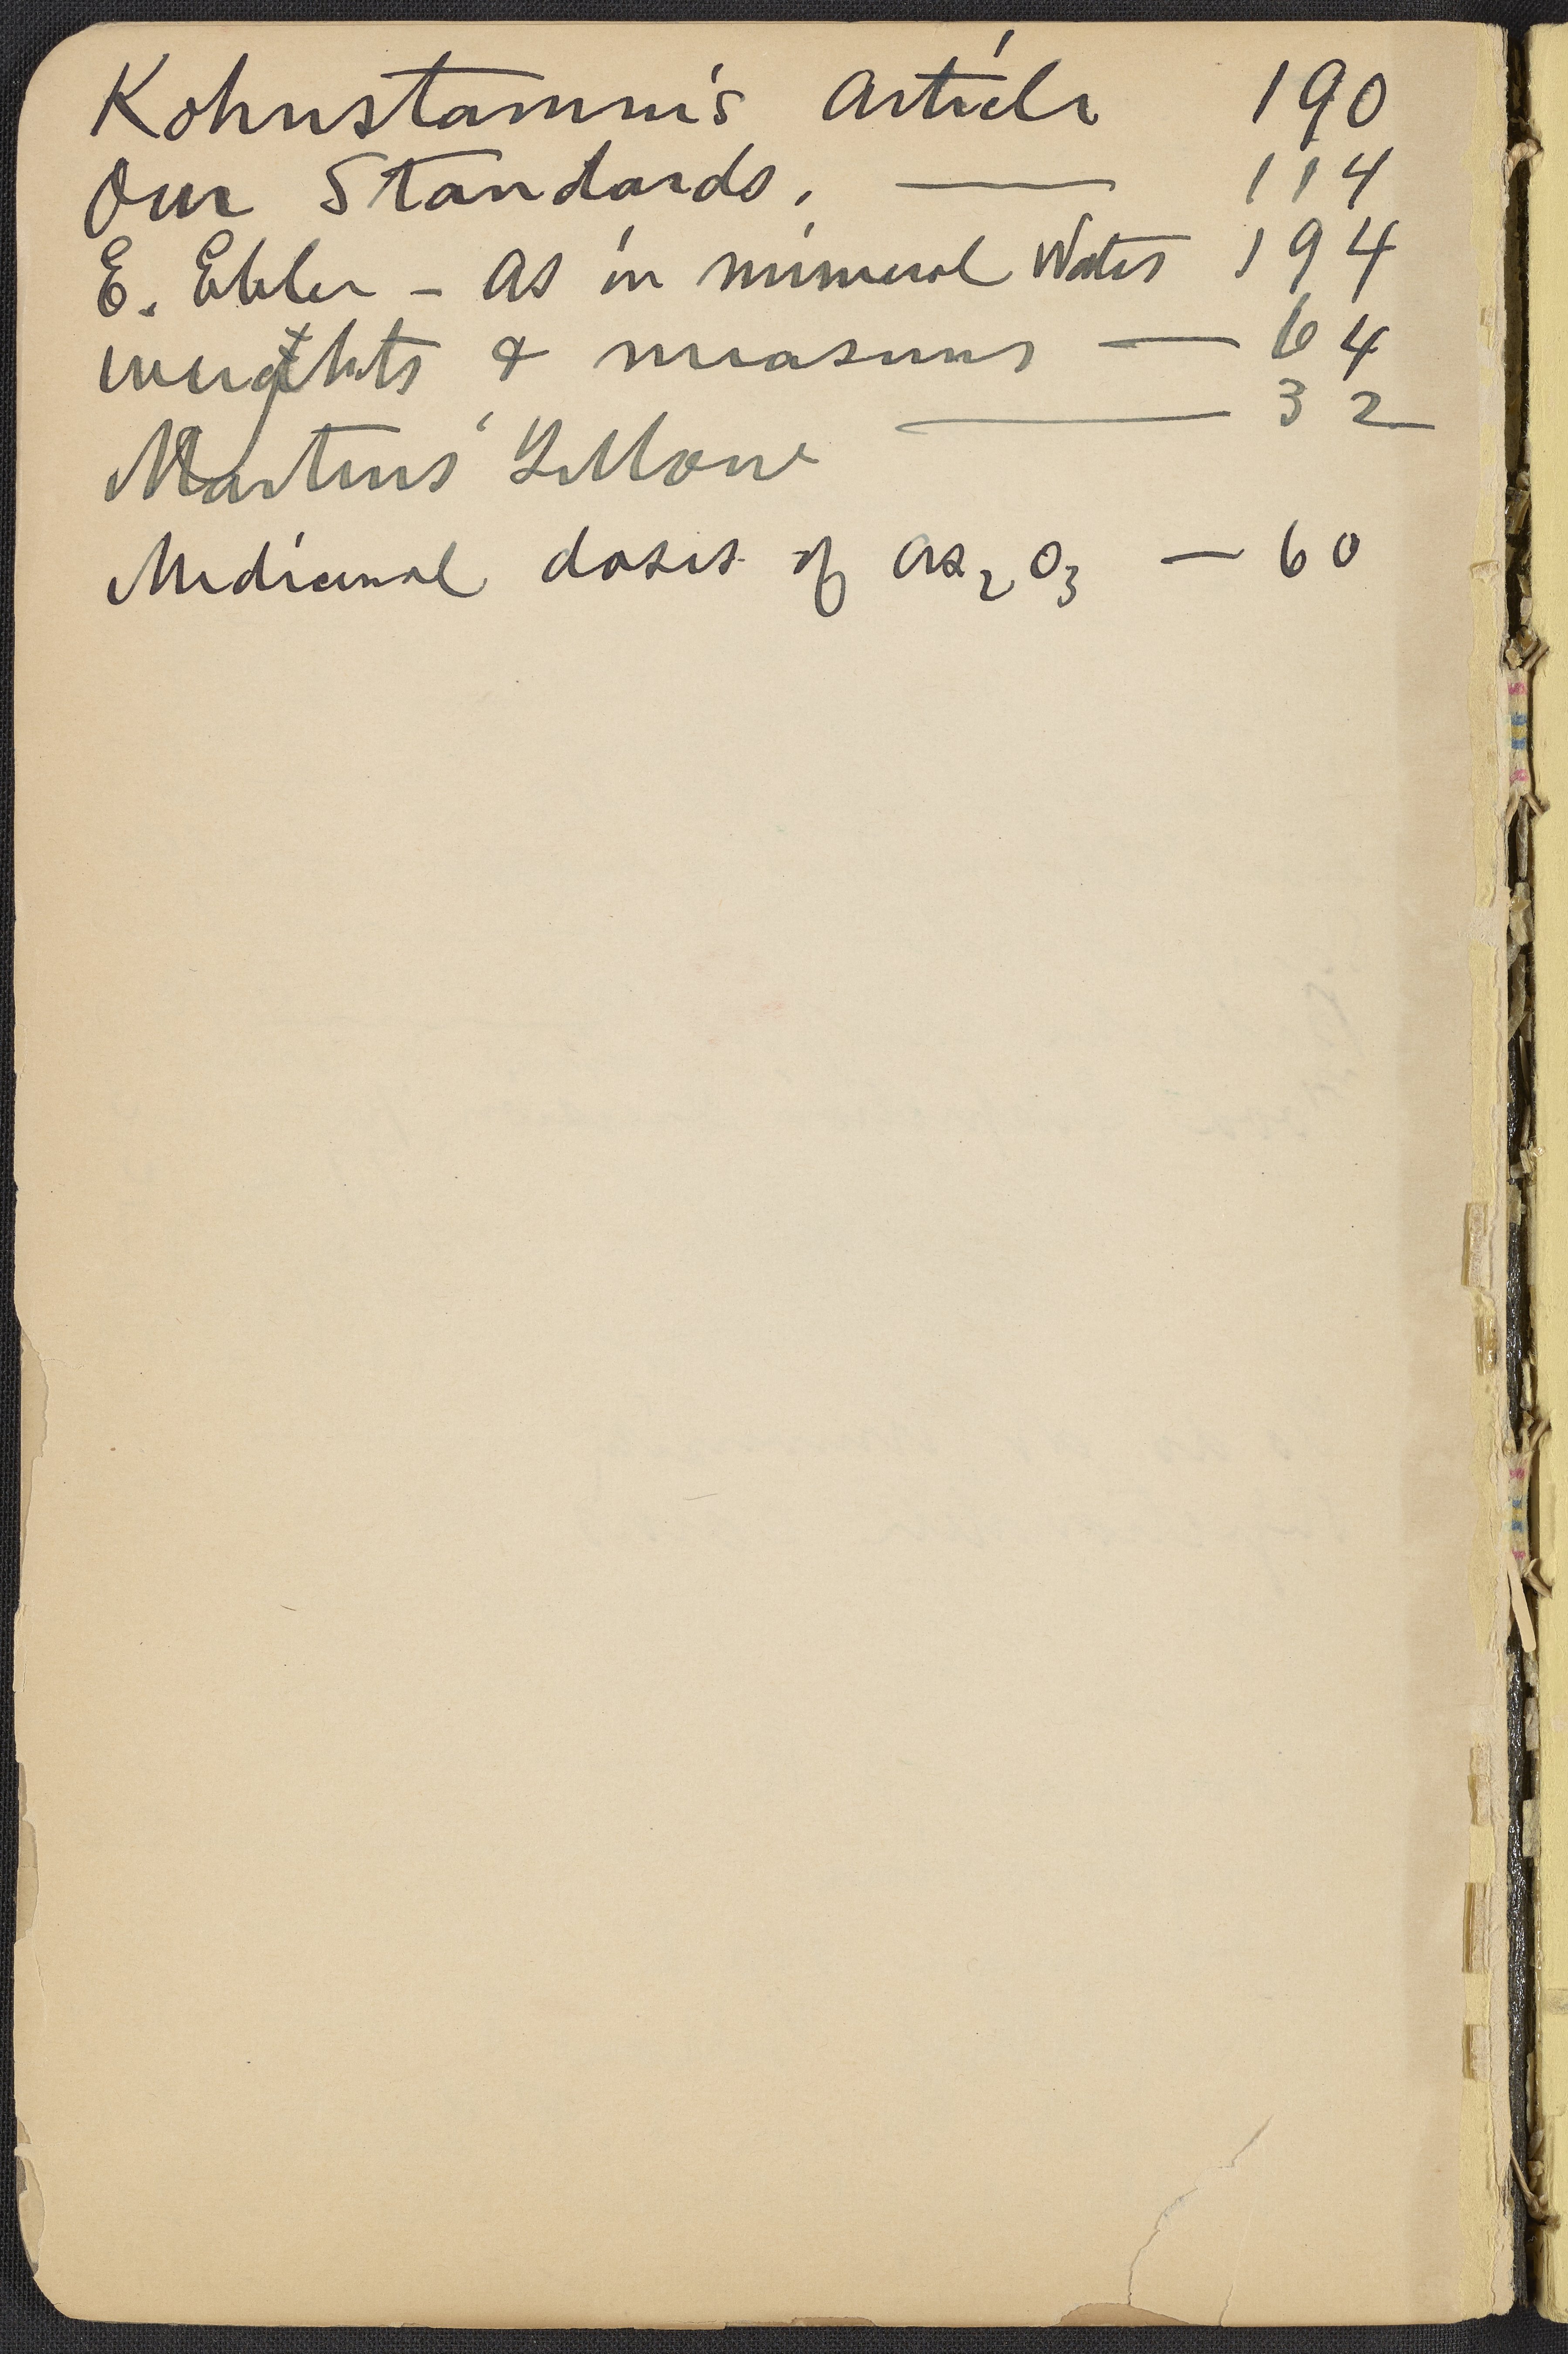 Kohnstamm's Article 190
Our Standards. — 114
E. Ebler – As in mineral Water 194
weights & measures — 64
Martius' Yellow — 32
Medicinal doses of As2O3 — 60